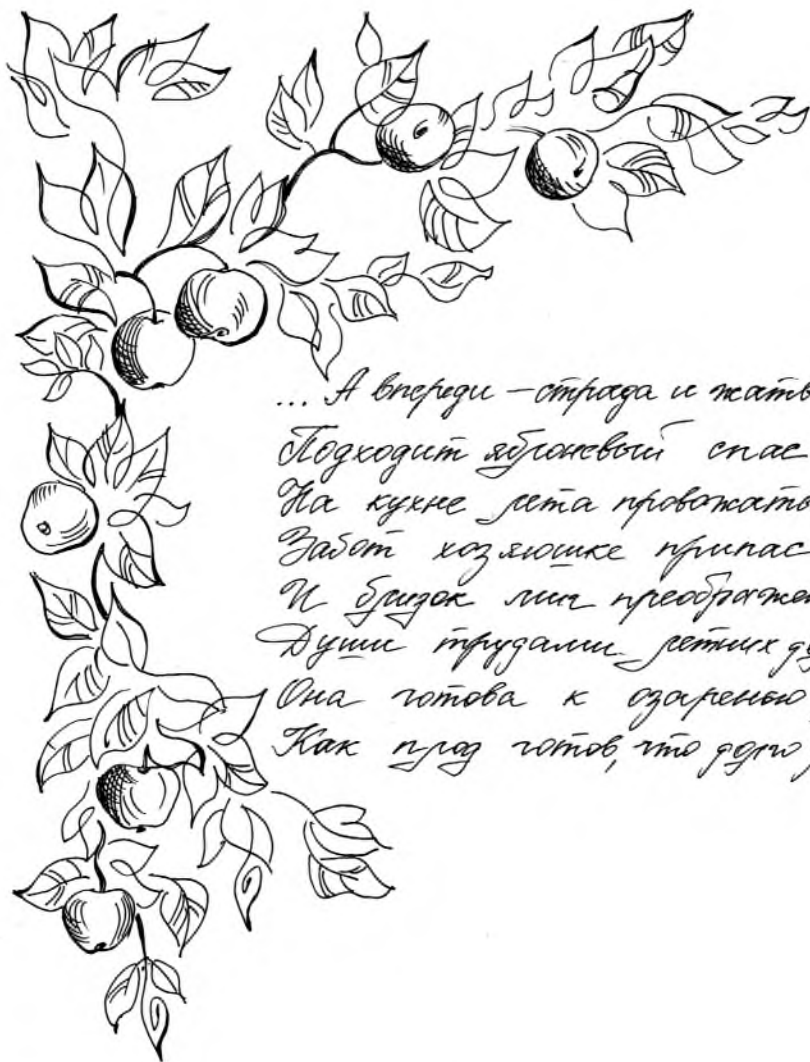 ... А впереди – страда и жать
Подходит яблоневый спас
На кухне лета провожать
Забот хозяюшке припас
И близок миг преображе
Души трудами летних
Она готова к озаренью
Как плод готов, что долго